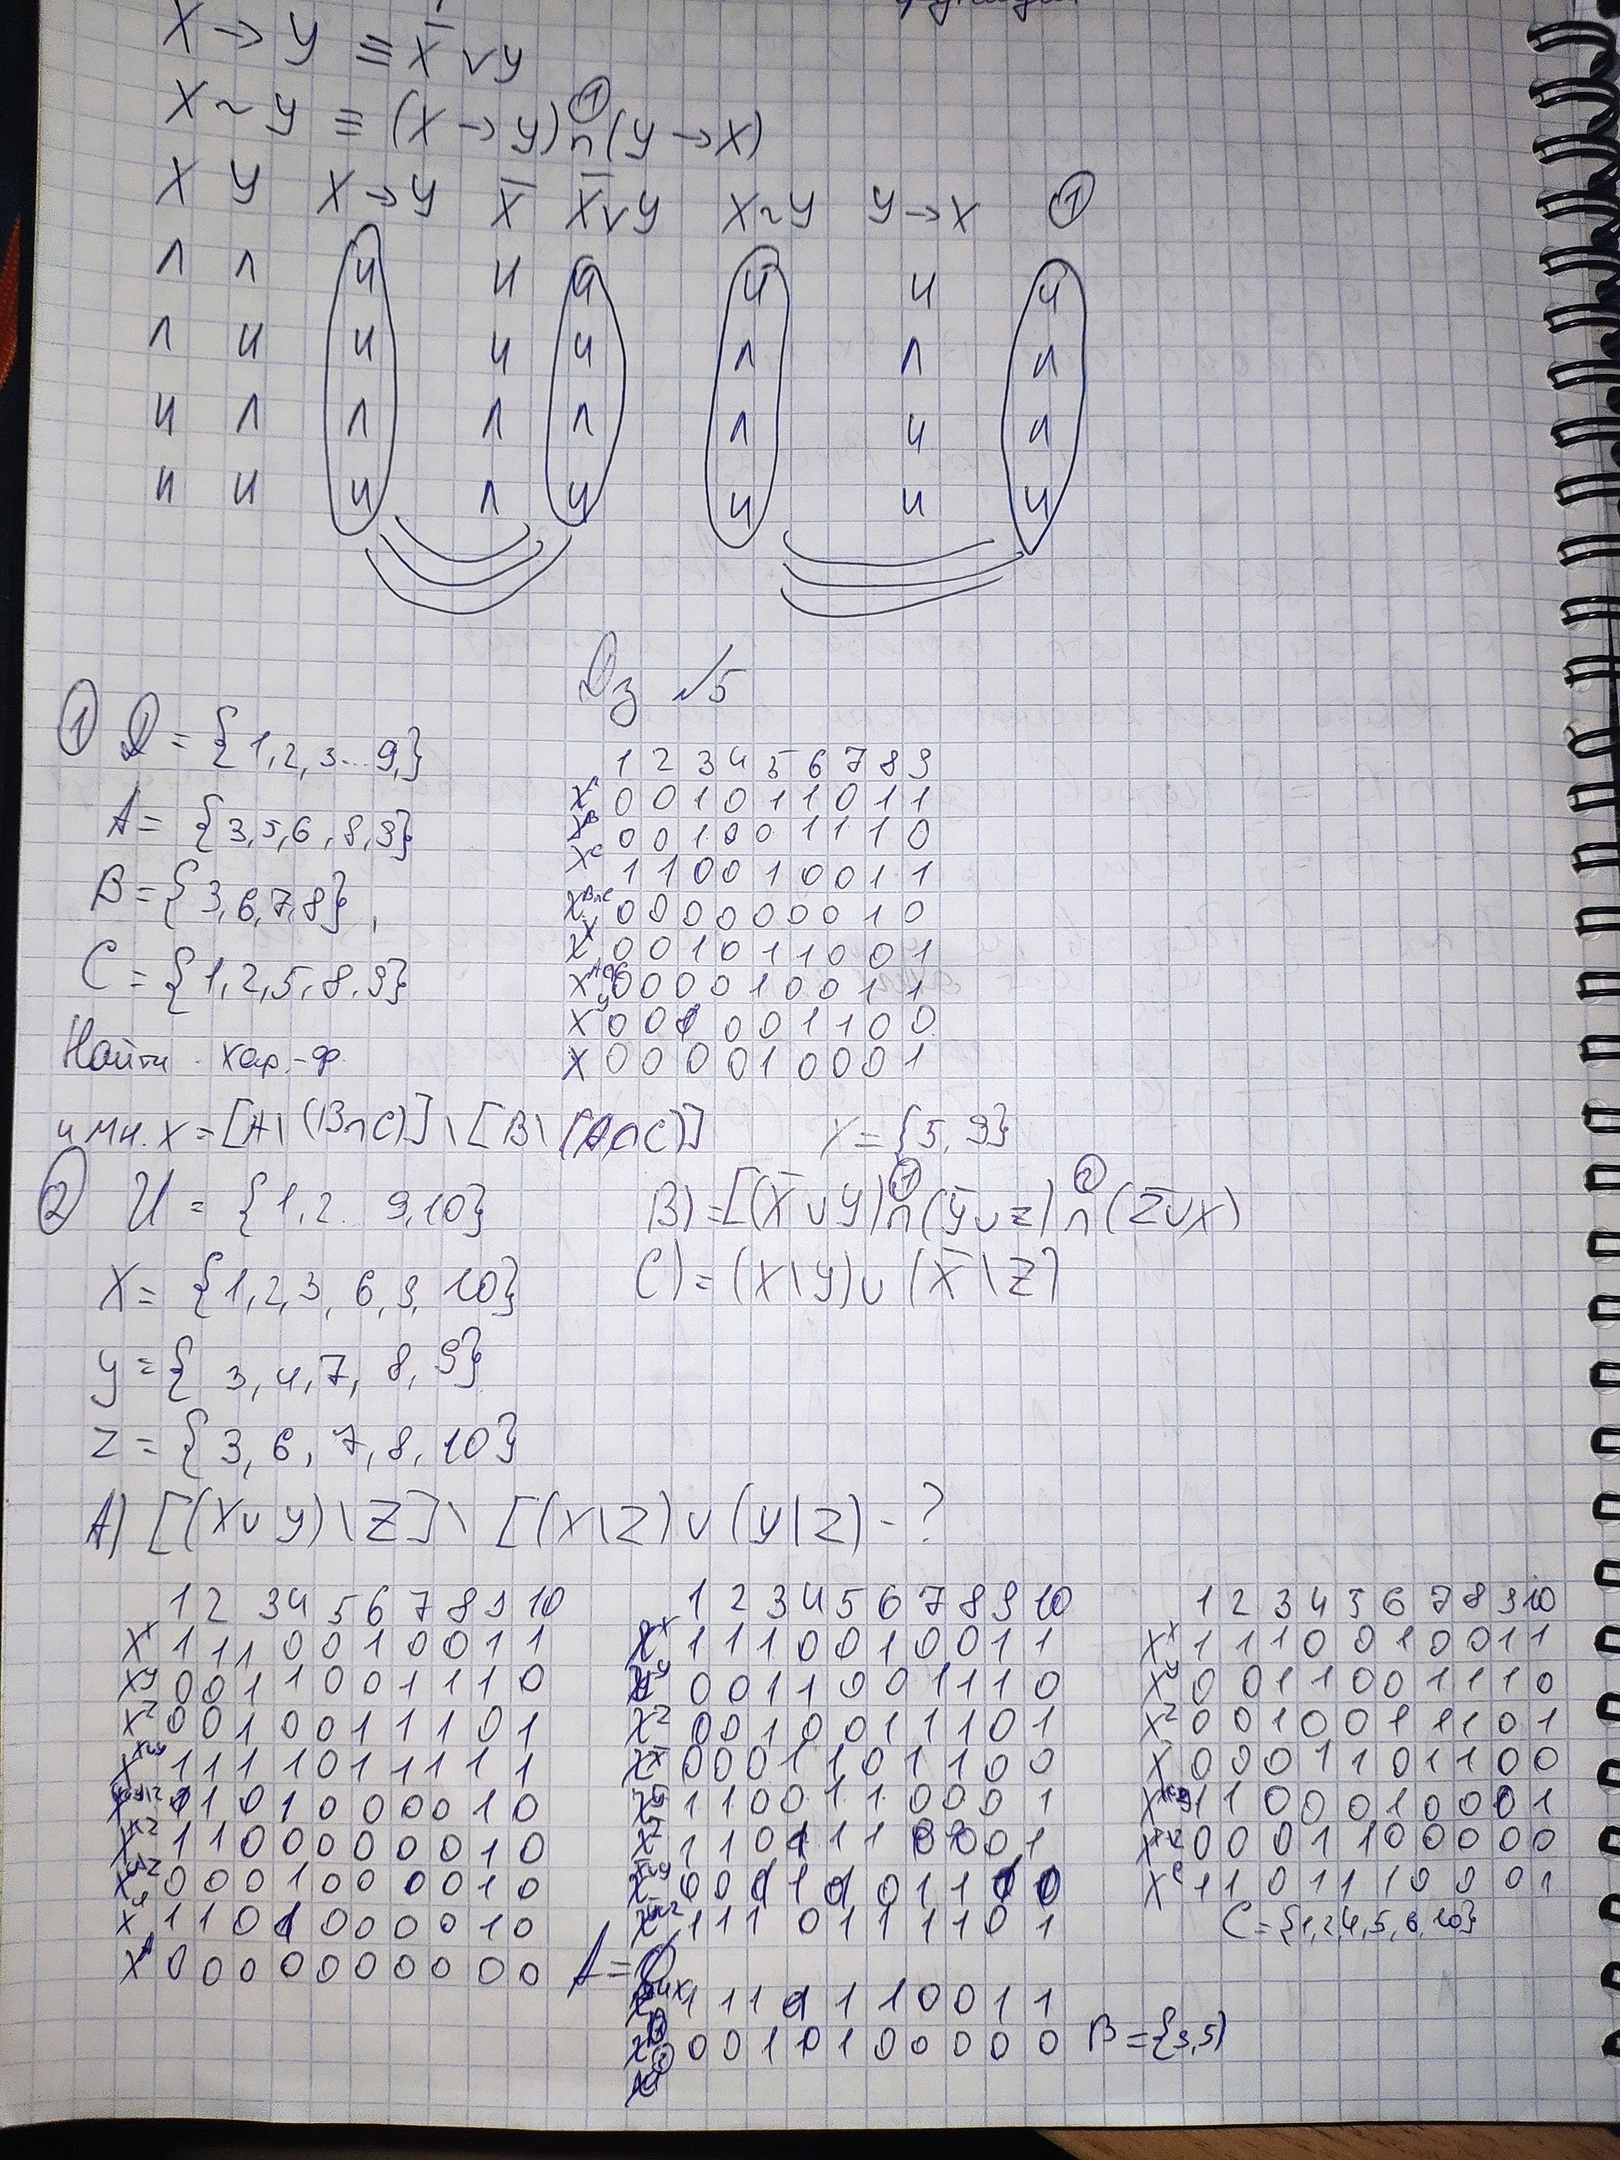 X → y ≡ X̅ ∨ y
X ~ y ≡ (X → y) ∩ (y → X)
①
X y X → y X̅ X̅∨y X~y y → X ①
Л Л И И И И И И
Л И И И И Л Л Л
И Л Л Л Л Л И Л
И И И Л И И И И
Дз №5
① D = {1,2,3...9,}
A = {3,5,6,8,9}
B = {3,6,7,8},
C = {1,2,5,8,9}
Найти хар.-ф.
1 2 3 4 5 6 7 8 9
Xᴬ 0 0 1 0 1 1 0 1 1
Xᴮ 0 0 1 0 0 1 1 1 0
Xᶜ 1 1 0 0 1 0 0 1 1
X^B∩C 0 0 0 0 0 0 0 1 0
X 0 0 1 0 1 1 0 0 1
X^A∩C 0 0 0 0 1 0 0 1 1
X^y 0 0 1 0 0 1 1 0 0
X 0 0 0 0 1 0 0 0 1
и мн. X = [A \ (B∩C)] \ [B \ (A∩C)] X = {5, 9}
② U = {1,2.. 9,10}
X = {1,2,3,6,9,10}
y = {3,4,7,8,9}
z = {3,6,7,8,10}
B) = [(X̅ ∪ y) ∩ (y̅ ∪ z) ∩ (z̅ ∪ x)
① ②
C) = (X \ y) ∪ (X̅ \ Z)
A) [(X ∪ y) \ Z] \ [(X \ Z) ∪ (y \ Z) - ?
1 2 3 4 5 6 7 8 9 10
X^x 1 1 1 0 0 1 0 0 1 1
X^y 0 0 1 1 0 0 1 1 1 0
X^z 0 0 1 0 0 1 1 1 0 1
X^x∪y 1 1 1 1 0 1 1 1 1 1
1 1 0 1 0 0 0 0 1 0
X^x\z 1 1 0 0 0 0 0 0 1 0
X^y\z 0 0 0 1 0 0 0 0 1 0
X^y 1 1 0 1 0 0 0 0 1 0
X^A 0 0 0 0 0 0 0 0 0 0 A = ∅
1 2 3 4 5 6 7 8 9 10
X^x 1 1 1 0 0 1 0 0 1 1
X^y 0 0 1 1 0 0 1 1 1 0
X^z 0 0 1 0 0 1 1 1 0 1
X^x̅ 0 0 0 1 1 0 1 1 0 0
X^y̅ 1 1 0 0 1 1 0 0 0 1
1 1 0 1 1 0 0 0 1
0 0 1 1 0 1 1
1 1 1 0 1 1 1 1 0 1
1 1 1 1 1 0 0 1 1
0 0 1 0 1 0 0 0 0 0 B = {3,5}
1 2 3 4 5 6 7 8 9 10
X^x 1 1 1 0 0 1 0 0 1 1
X^y 0 0 1 1 0 0 1 1 1 0
X^z 0 0 1 0 0 1 1 1 0 1
X 0 0 0 1 1 0 1 1 0 0
1 1 0 0 0 1 0 0 0 1
0 0 0 1 1 0 0 0 0 0
X^c 1 1 0 1 1 1 0 0 0 0 1
C = {1,2,4,5,6,10}